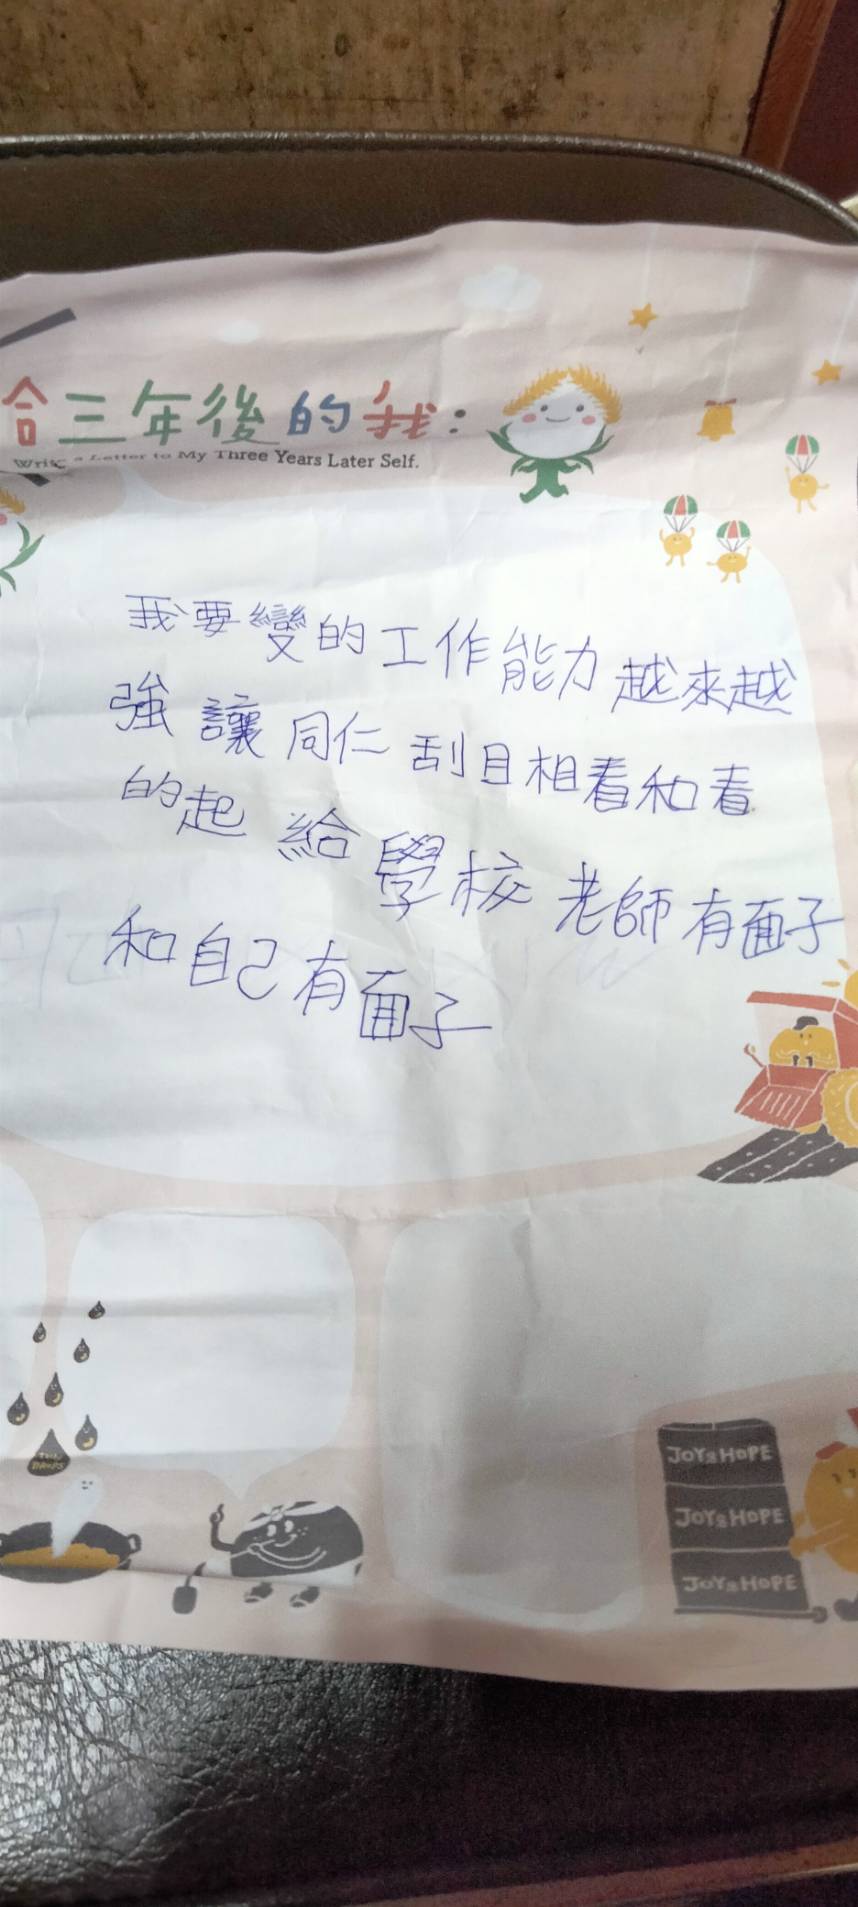 給三年後的我：
Write a Letter to My Three Years Later Self.
我要變的工作能力越來越
強讓同仁刮目相看和看
的起給學校老師有面子
和自己有面子
JOY&HOPE
JOY&HOPE
JOY&HOPE